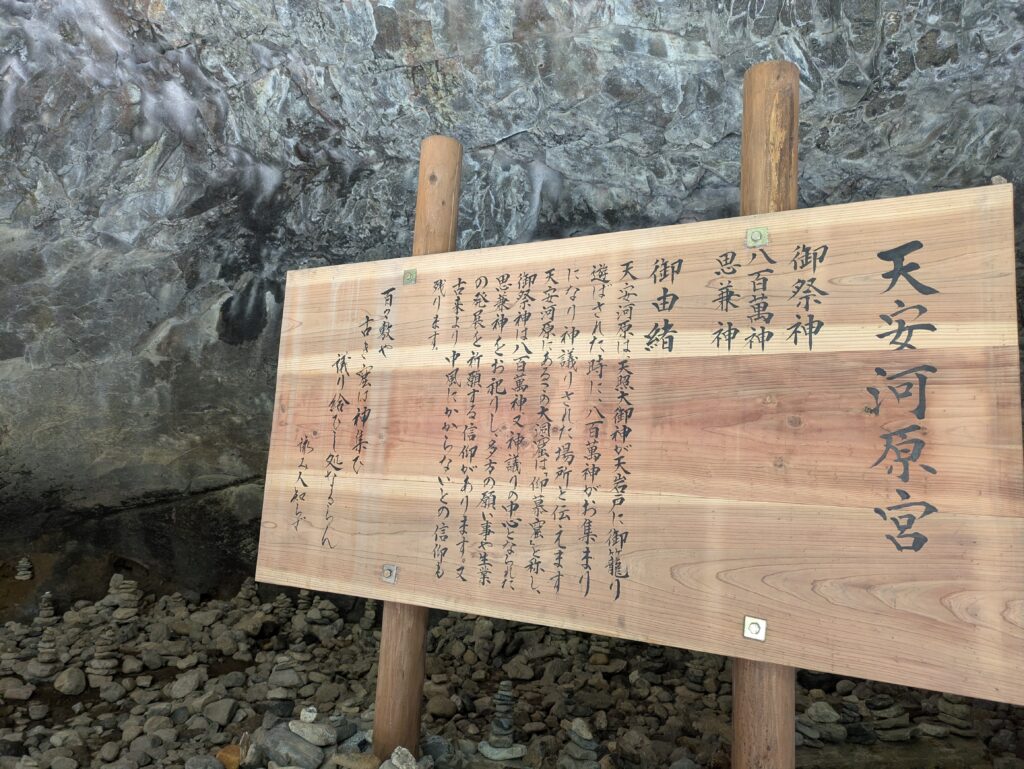 天安河原宮
御祭神
八百萬神
思兼神
御由緒
天安河原は、天照大御神が天岩戸に御籠り
遊ばされた時に、八百萬神がお集まり
になり神議りされた場所と伝えます
天安河原にあるこの大洞窟は、「仰慕窟」と称し、
御祭神は八百萬神又神議りの中心となられた
思兼神をお祀りし、多方の願い事や生業
の発展を祈願する信仰があります。又
古来より、中風にかからないとの信仰も
残ります。
百々敷や
古き窟は神集ひ
議り給ひし処なるらん
詠み人知らず